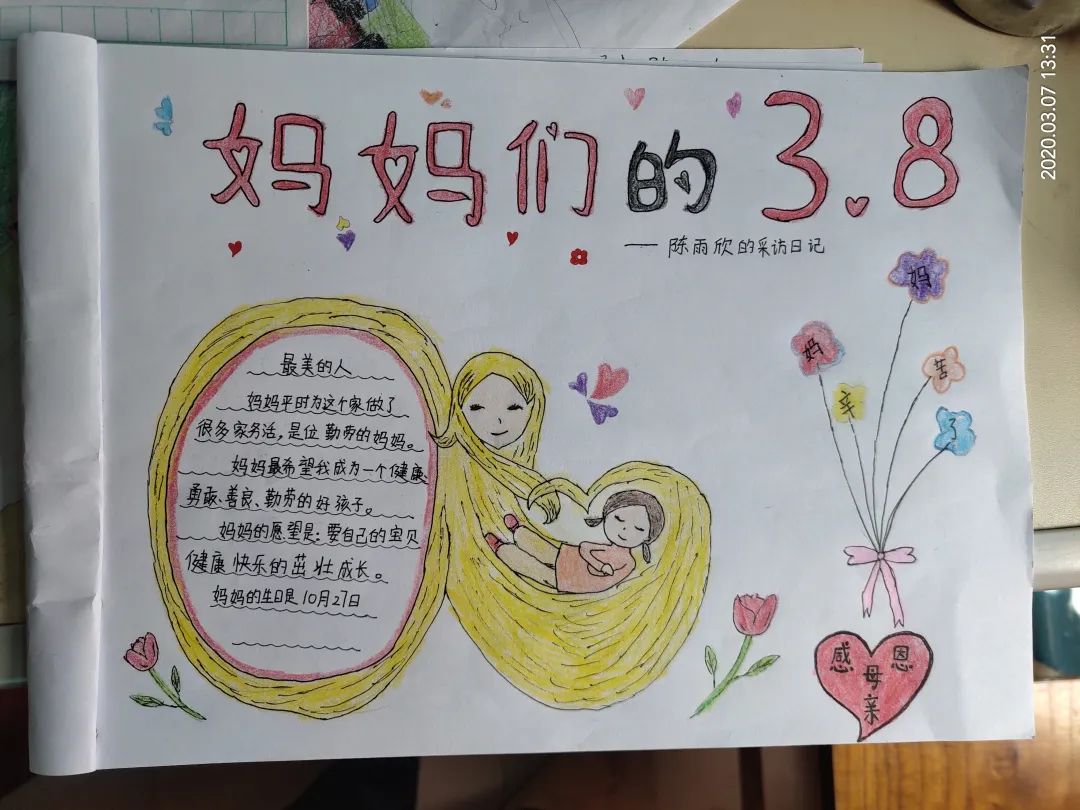 妈妈们的3.8
——陈雨欣的采访日记
最美的人
妈妈平时为这个家做了
很多家务活,是位勤劳的妈妈。
妈妈最希望我成为一个健康、
勇敢、善良、勤劳的好孩子。
妈妈的愿望是:要自己的宝贝
健康快乐的茁壮成长。
妈妈的生日是10月27日
妈
妈
辛
苦
了
感恩
母
亲
2020.03.07 13:31